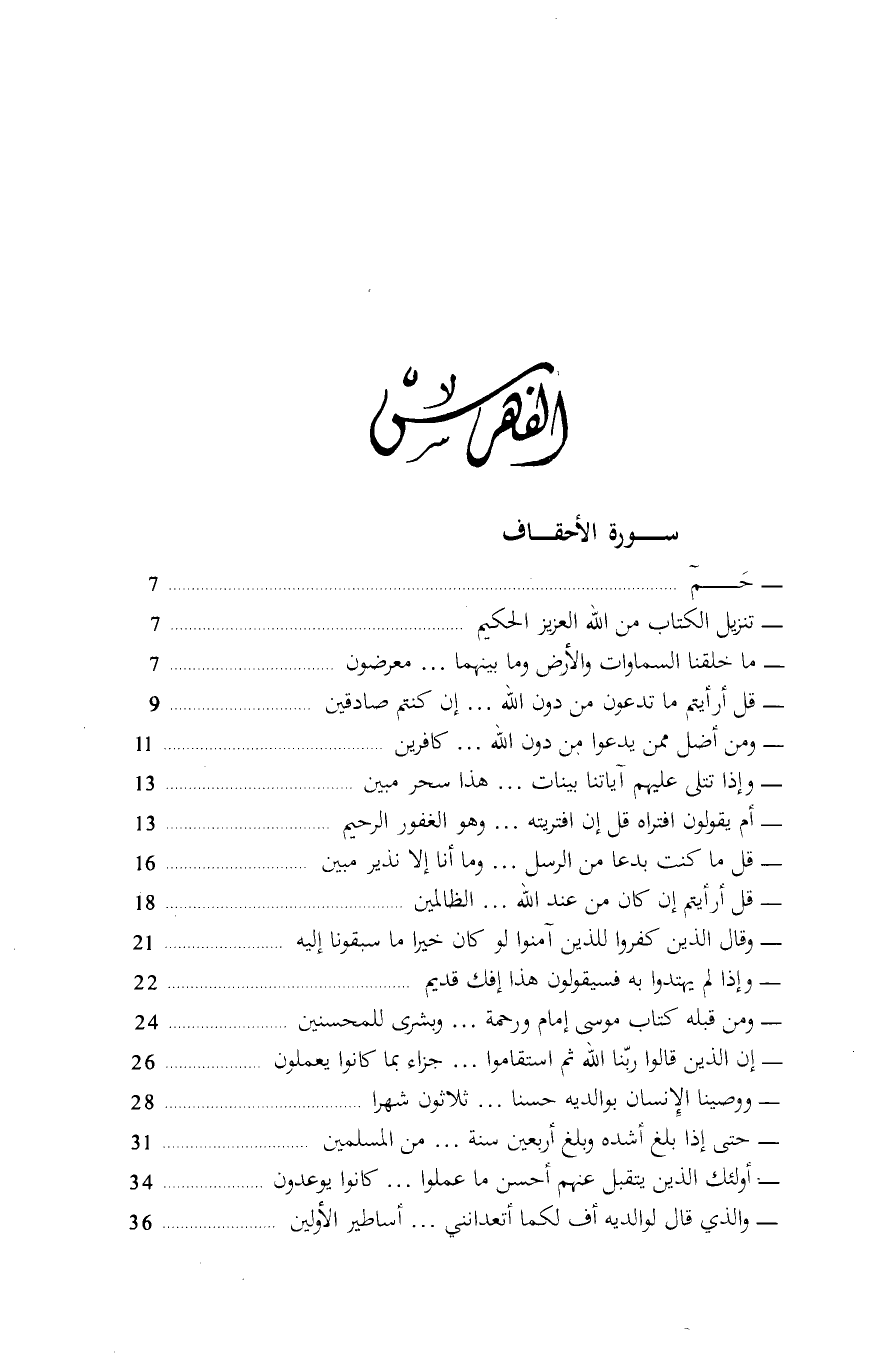 الفهرس
ســورة الأحقــاف
— حَــمۤ ........ 7
— تنزيل الكتاب من الله العزيز الحكيم ........ 7
— ما خلقنا السماوات والأرض وما بينهما ... معرضون ........ 7
— قل أرأيتم ما تدعون من دون الله ... إن كنتم صادقين ........ 9
— ومن أضل ممن يدعوا من دون الله ... كافرين ........ 11
— وإذا تتلى عليهم آياتنا بينات ... هذا سحر مبين ........ 13
— أم يقولون افتراه قل إن افتريته ... وهو الغفور الرحيم ........ 13
— قل ما كنت بدعا من الرسل ... وما أنا إلا نذير مبين ........ 16
— قل أرأيتم إن كان من عند الله ... الظالمين ........ 18
— وقال الذين كفروا للذين آمنوا لو كان خيرا ما سبقونا إليه ........ 21
— وإذا لم يهتدوا به فسيقولون هذا إفك قديم ........ 22
— ومن قبله كتاب موسى إمام ورحمة ... وبشرى للمحسنين ........ 24
— إن الذين قالوا ربّنا الله ثم استقاموا ... جزاء بما كانوا يعملون ........ 26
— ووصينا الإنسان بوالديه حسنا ... ثلاثون شهرا ........ 28
— حتى إذا بلغ أشده وبلغ أربعين سنة ... من المسلمين ........ 31
— أولئك الذين يتقبل عنهم أحسن ما عملوا ... كانوا يوعدون ........ 34
— والذي قال لوالديه أف لكما أتعدانني ... أساطير الأولين ........ 36